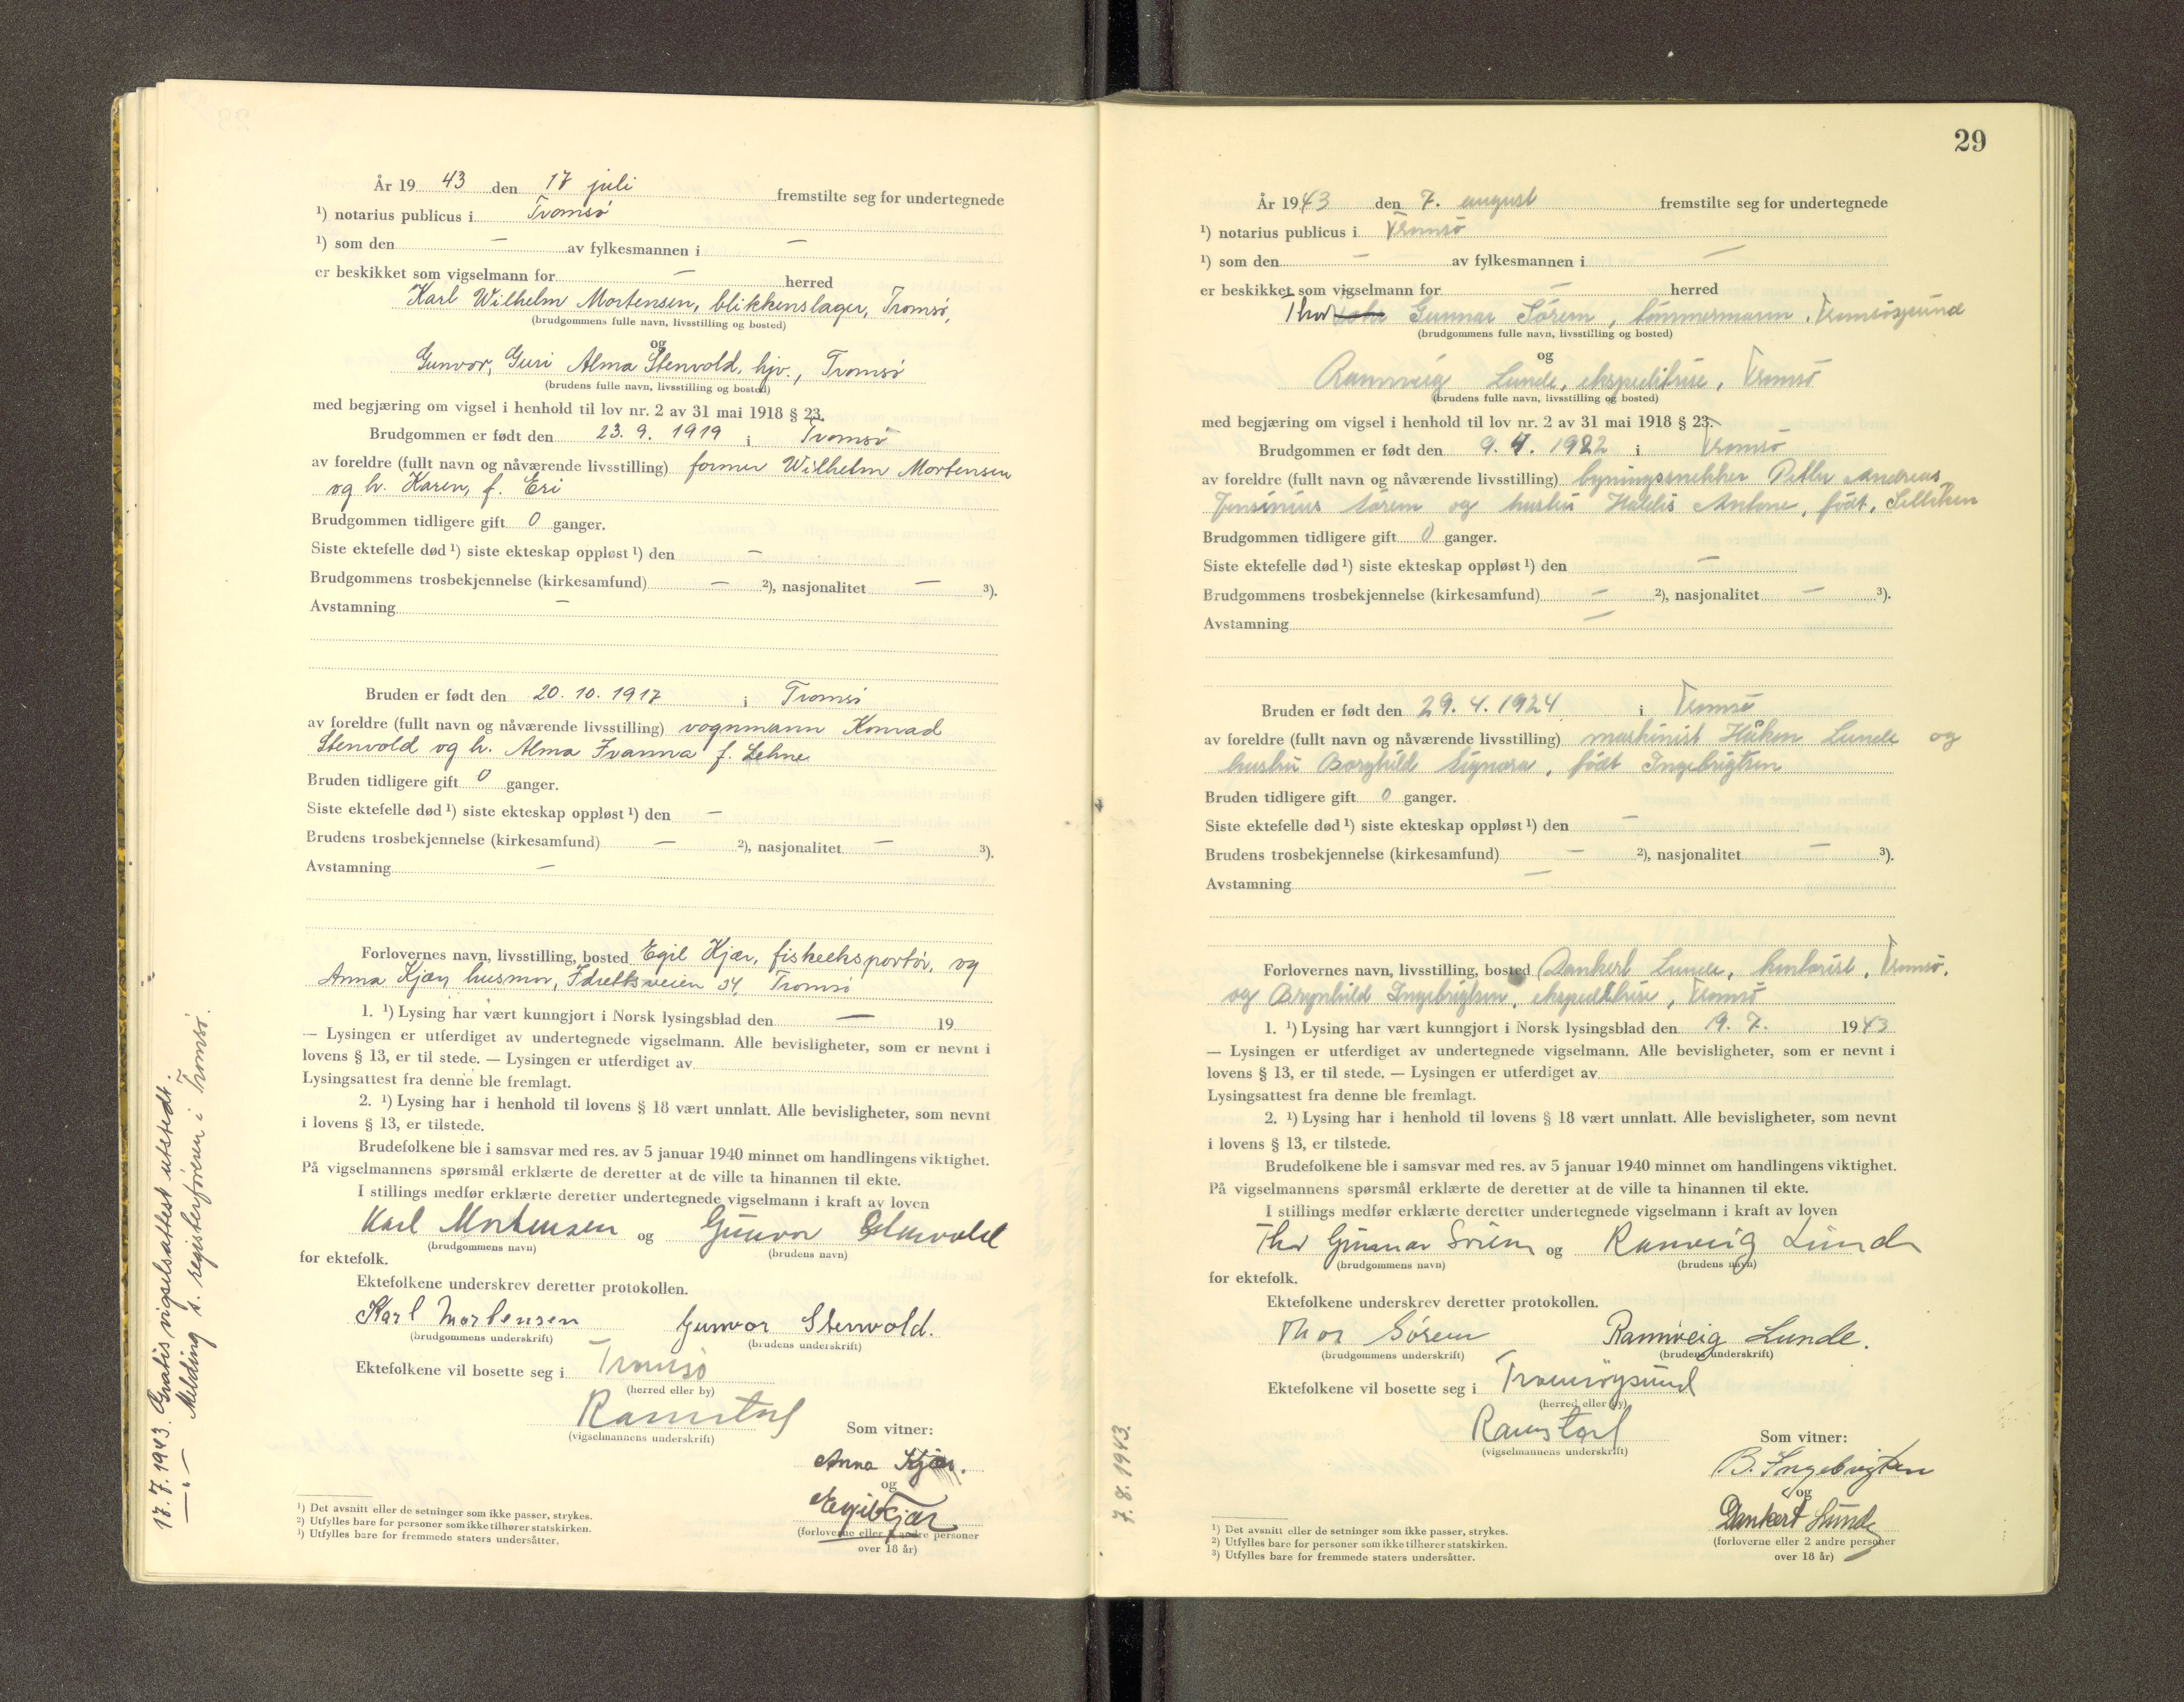 År 1943 den 17 juli fremstilte seg for undertegnede
¹) notarius publicus i Tromsø
¹) som den — av fylkesmannen i —
er beskikket som vigselmann for — herred
Karl Wilhelm Mortensen, blikkenslager, Tromsø,
(brudgommens fulle navn, livsstilling og bosted)
og
Gunvor, Guri Alma Stenvold, hjv., Tromsø
(brudens fulle navn, livsstilling og bosted)
med begjæring om vigsel i henhold til lov nr. 2 av 31 mai 1918 § 23.
Brudgommen er født den 23. 9. 1919 i Tromsø
av foreldre (fullt navn og nåværende livsstilling) former Wilhelm Mortensen
og h. Karen, f. Eri
Brudgommen tidligere gift 0 ganger.
Siste ektefelle død ¹) siste ekteskap oppløst ¹) den —
Brudgommens trosbekjennelse (kirkesamfund) — ²), nasjonalitet — ³).
Avstamning —
Bruden er født den 20. 10. 1917 i Tromsø
av foreldre (fullt navn og nåværende livsstilling) vognmann Konrad
Stenvold og h. Alma Ivanna f. Lehne
Bruden tidligere gift 0 ganger.
Siste ektefelle død ¹) siste ekteskap oppløst ¹) den —
Brudens trosbekjennelse (kirkesamfund) — ²), nasjonalitet — ³).
Avstamning —
Forlovernes navn, livsstilling, bosted Egil Kjær, fiskeeksportør, og
Anna Kjær, husmor, Idrettsveien 34, Tromsø
1. ¹) Lysing har vært kunngjort i Norsk lysingsblad den — 19
— Lysingen er utferdiget av undertegnede vigselmann. Alle bevisligheter, som er nevnt i
lovens § 13, er til stede. — Lysingen er utferdiget av
Lysingsattest fra denne ble fremlagt.
2. ¹) Lysing har i henhold til lovens § 18 vært unnlatt. Alle bevisligheter, som nevnt
i lovens § 13, er tilstede.
Brudefolkene ble i samsvar med res. av 5 januar 1940 minnet om handlingens viktighet.
På vigselmannens spørsmål erklærte de deretter at de ville ta hinannen til ekte.
I stillings medfør erklærte deretter undertegnede vigselmann i kraft av loven
Karl Mortensen og Gunvor Stenvold
(brudgommens navn) (brudens navn)
for ektefolk.
Ektefolkene underskrev deretter protokollen.
Karl Mortensen Gunvor Stenvold.
(brudgommens underskrift) (brudens underskrift)
Ektefolkene vil bosette seg i Tromsø
(herred eller by)
Ramstad
(vigselmannens underskrift)
Som vitner:
Anna Kjær.
og
Egil Kjær
(forloverne eller 2 andre personer
over 18 år)
¹) Det avsnitt eller de setninger som ikke passer, strykes.
²) Utfylles bare for personer som ikke tilhører statskirken.
³) Utfylles bare for fremmede staters undersåtter.
17. 7. 1943. Gratis vigselsattest utstedt.
—„— Melding s. registerføreren i Tromsø.
29
År 1943 den 7. august fremstilte seg for undertegnede
¹) notarius publicus i Tromsø
¹) som den — av fylkesmannen i —
er beskikket som vigselmann for — herred
Thor Gunnar Sörem, tömmermann, Tromsøysund
(brudgommens fulle navn, livsstilling og bosted)
og
Rannveig Lunde, ekspeditrise, Tromsö
(brudens fulle navn, livsstilling og bosted)
med begjæring om vigsel i henhold til lov nr. 2 av 31 mai 1918 § 23.
Brudgommen er født den 9. 4. 1922 i Tromsö
av foreldre (fullt navn og nåværende livsstilling) bygningssnekker Petter Andreas
Jensinius Sörem og hustru Haldis Antone, född,
Brudgommen tidligere gift 0 ganger.
Siste ektefelle død ¹) siste ekteskap oppløst ¹) den —
Brudgommens trosbekjennelse (kirkesamfund) — ²), nasjonalitet — ³).
Avstamning —
Bruden er født den 29. 4. 1924 i Tromsö
av foreldre (fullt navn og nåværende livsstilling) maskinist Håkon Lunde og
hustru Borghild Signora, födt Ingebrigtsen
Bruden tidligere gift 0 ganger.
Siste ektefelle død ¹) siste ekteskap oppløst ¹) den —
Brudens trosbekjennelse (kirkesamfund) — ²), nasjonalitet — ³).
Avstamning —
Forlovernes navn, livsstilling, bosted Dankert Lunde, kontorist, Tromsö,
og Brynhild Ingebrigtsen, ekspeditrise, Tromsö
1. ¹) Lysing har vært kunngjort i Norsk lysingsblad den 19. 7. 1943
— Lysingen er utferdiget av undertegnede vigselmann. Alle bevisligheter, som er nevnt i
lovens § 13, er til stede. — Lysingen er utferdiget av
Lysingsattest fra denne ble fremlagt.
2. ¹) Lysing har i henhold til lovens § 18 vært unnlatt. Alle bevisligheter, som nevnt
i lovens § 13, er tilstede.
Brudefolkene ble i samsvar med res. av 5 januar 1940 minnet om handlingens viktighet.
På vigselmannens spørsmål erklærte de deretter at de ville ta hinannen til ekte.
I stillings medfør erklærte deretter undertegnede vigselmann i kraft av loven
Thor Gunnar Sörem og Ranveig Lunde
(brudgommens navn) (brudens navn)
for ektefolk.
Ektefolkene underskrev deretter protokollen.
Thor Sörem Rannveig Lunde.
(brudgommens underskrift) (brudens underskrift)
Ektefolkene vil bosette seg i Tromsöysund
(herred eller by)
Ramstad
(vigselmannens underskrift)
Som vitner:
B. Ingebrigtsen
og
Dankert Lunde
(forloverne eller 2 andre personer
over 18 år)
¹) Det avsnitt eller de setninger som ikke passer, strykes.
²) Utfylles bare for personer som ikke tilhører statskirken.
³) Utfylles bare for fremmede staters undersåtter.
7. 8. 1943.